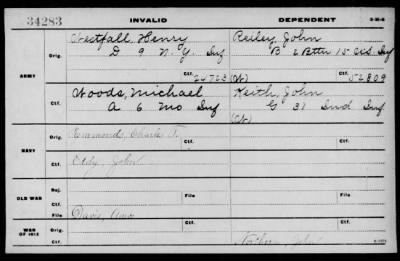 34283 INVALID DEPENDENT
Westfall, Henry Reiley, John
ARMY Orig. D 9 N.Y. Inf Orig. B 2 Bttn 15 U.S. Inf
Ctf. 24723 Ctf. 52809
Woods, Michael Keith, John
Ctf. A 6 Mo Inf Ctf. G 31 Ind Inf
NAVY Orig. Emmonds, Charles F. Orig.
Ctf. Eddy, John Ctf.
OLD WAR Rej. File File
Ctf.
File Davis, Amos
WAR OF 1812 Orig.
Ctf. John